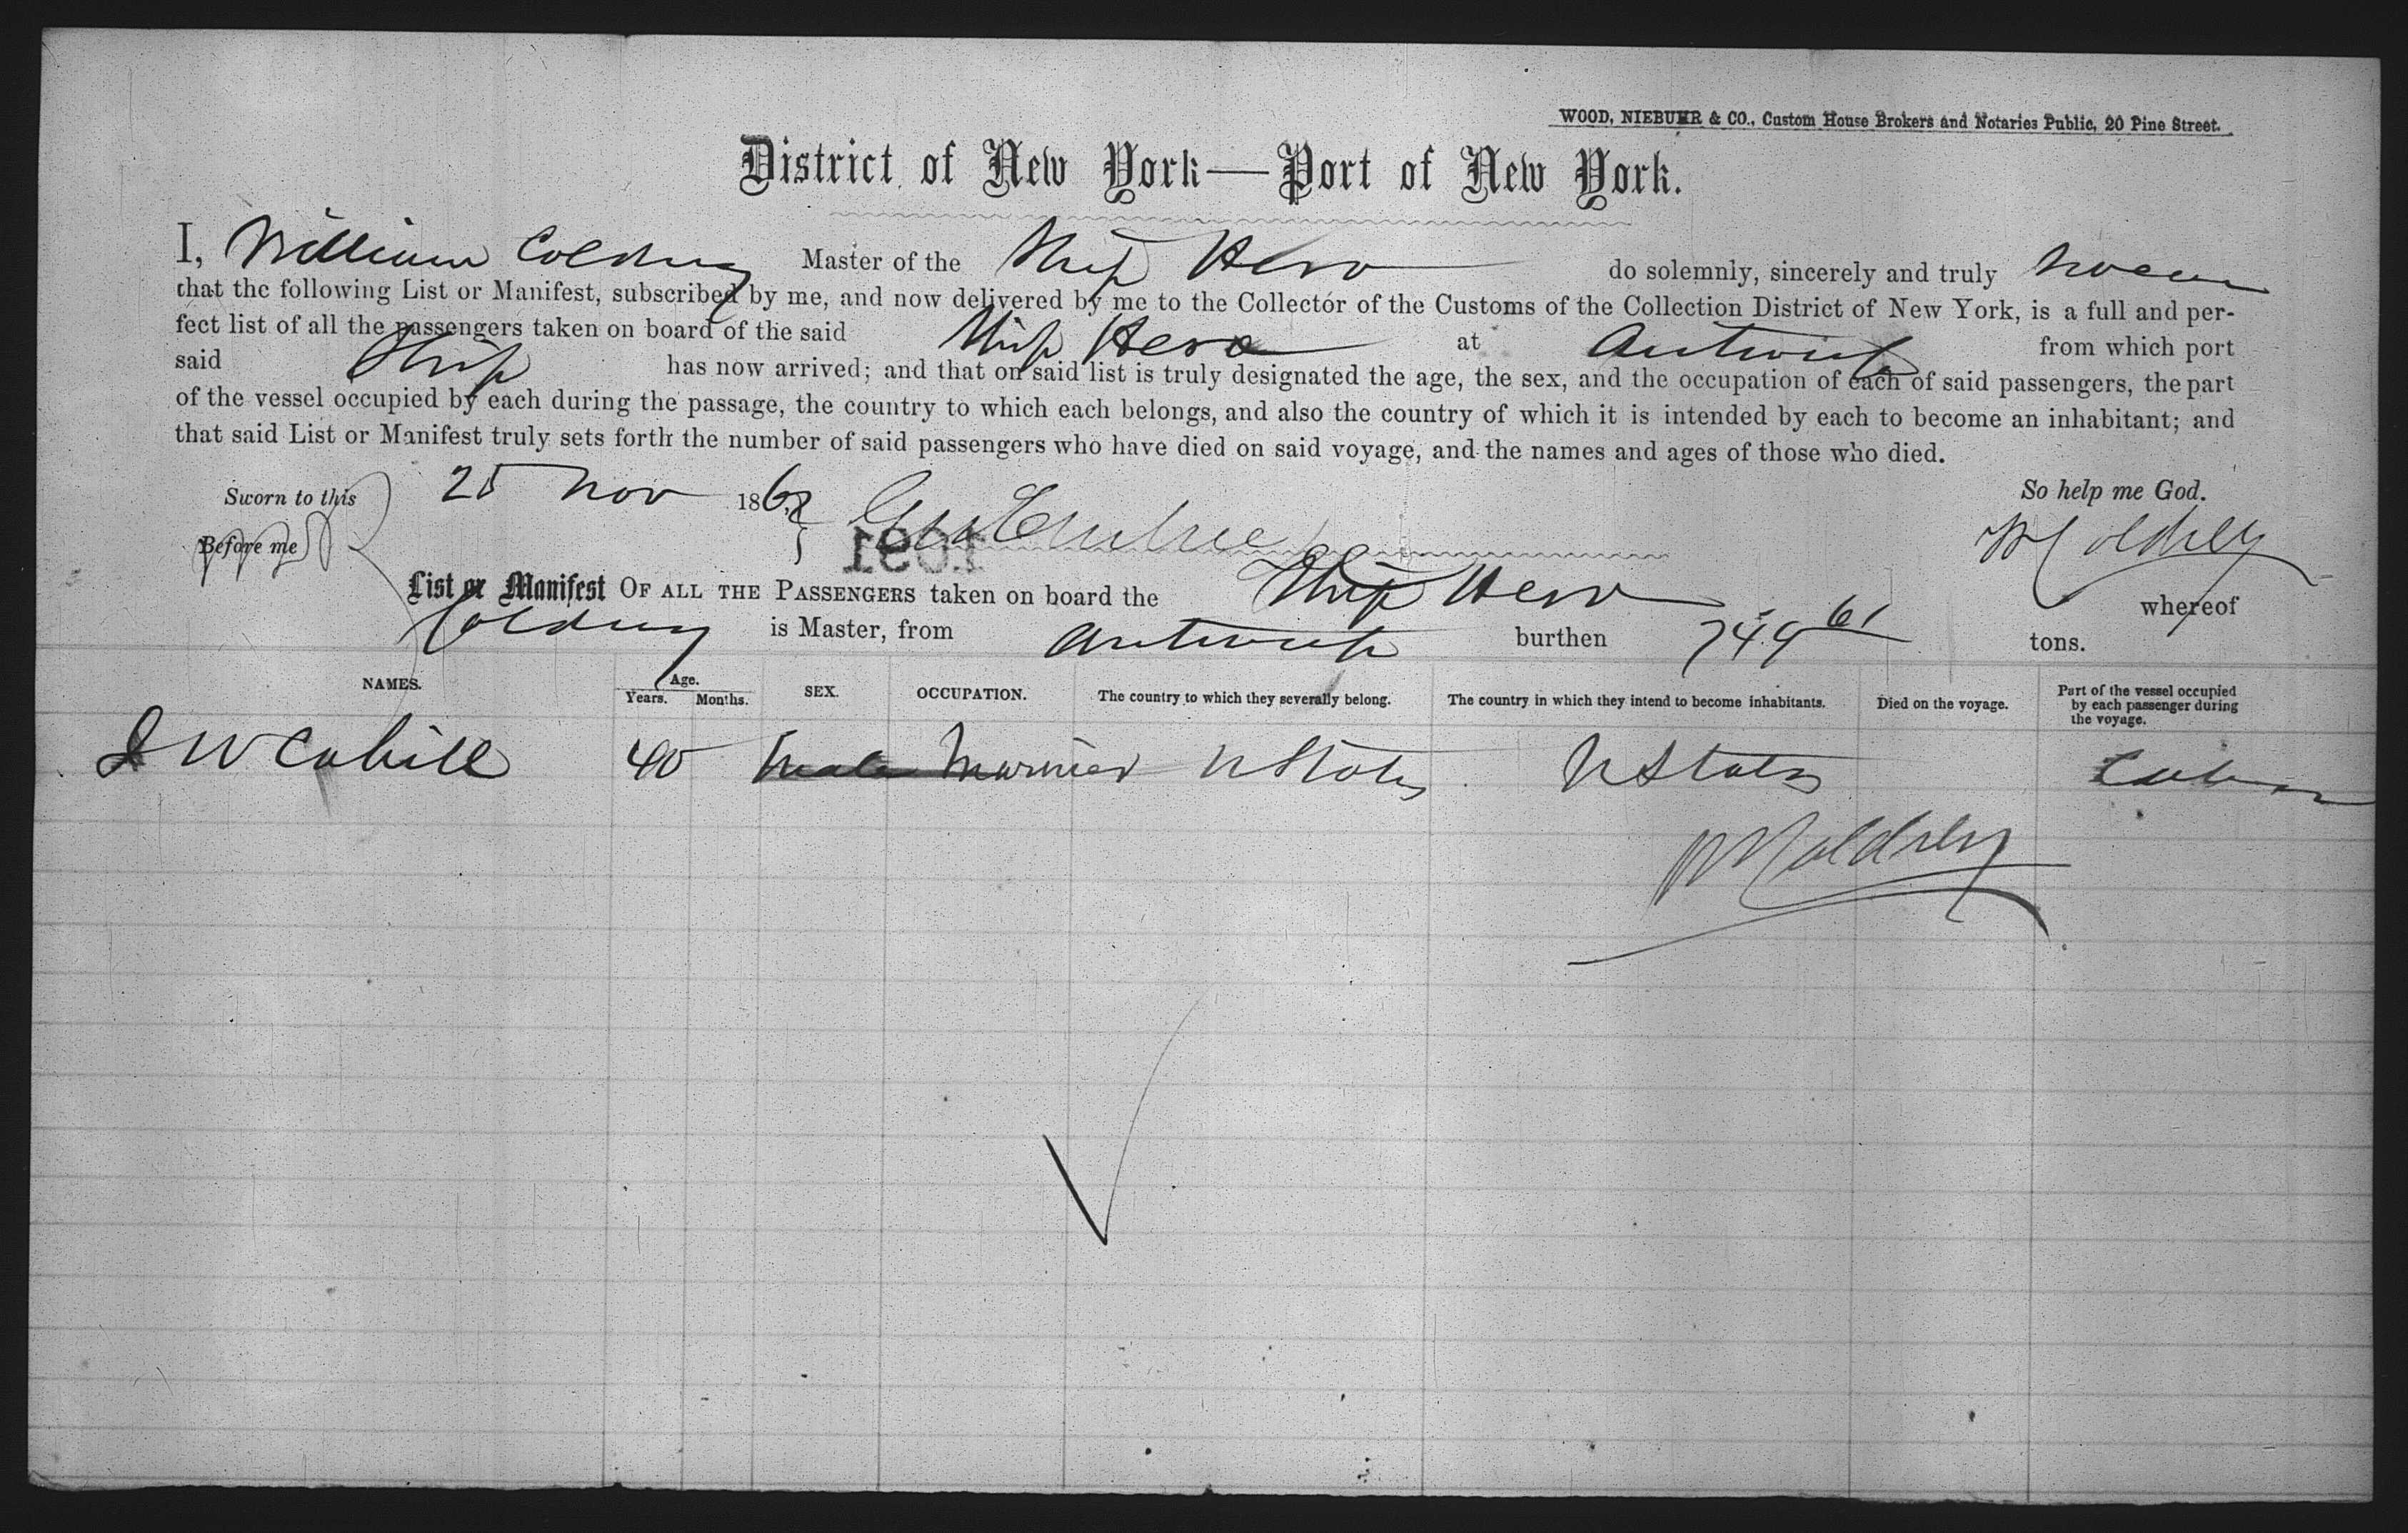 WOOD, NIEBUHR & CO., Custom House Brokers and Notaries Public, 20 Pine Street.
District of New York—Port of New York.
I, William Coldrey Master of the Ship Hero do solemnly, sincerely and truly swear
that the following List or Manifest, subscribed by me, and now delivered by me to the Collector of the Customs of the Collection District of New York, is a full and per-
fect list of all the passengers taken on board of the said Ship Hero at Antwerp from which port
said Ship has now arrived; and that on said list is truly designated the age, the sex, and the occupation of each of said passengers, the part
of the vessel occupied by each during the passage, the country to which each belongs, and also the country of which it is intended by each to become an inhabitant; and
that said List or Manifest truly sets forth the number of said passengers who have died on said voyage, and the names and ages of those who died.
Sworn to this 25 Nov 1868 So help me God.
Before me W Coldrey
1091
List or Manifest OF ALL THE PASSENGERS taken on board the Ship Hero whereof
Coldrey is Master, from Antwerp burthen 749 61 tons.
NAMES. Age. Years. Months. SEX. OCCUPATION. The country to which they severally belong. The country in which they intend to become inhabitants. Died on the voyage. Part of the vessel occupied by each passenger during the voyage.
J W Cahill 40 Male Mariner U States U States Cabin
W Coldrey